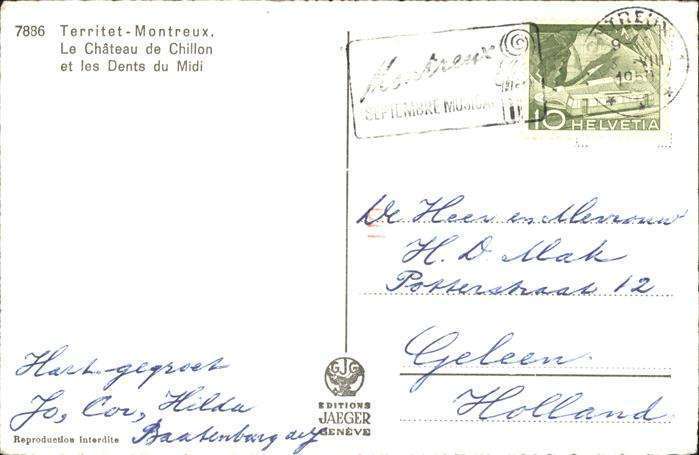 7886 Territet-Montreux.
Le Château de Chillon
et les Dents du Midi
Montreux
SEPTEMBRE MUSICAL
MONTREUX
VIII
10
HELVETIA
De Heer en Mevrouw
H. D. Mak
Potterstraat 12
Geleen
Holland
Hart. gegroet
Jo, Cor, Hilda
Baatenburg de J
GJG
EDITIONS
JAEGER
GENÈVE
Reproduction interdite